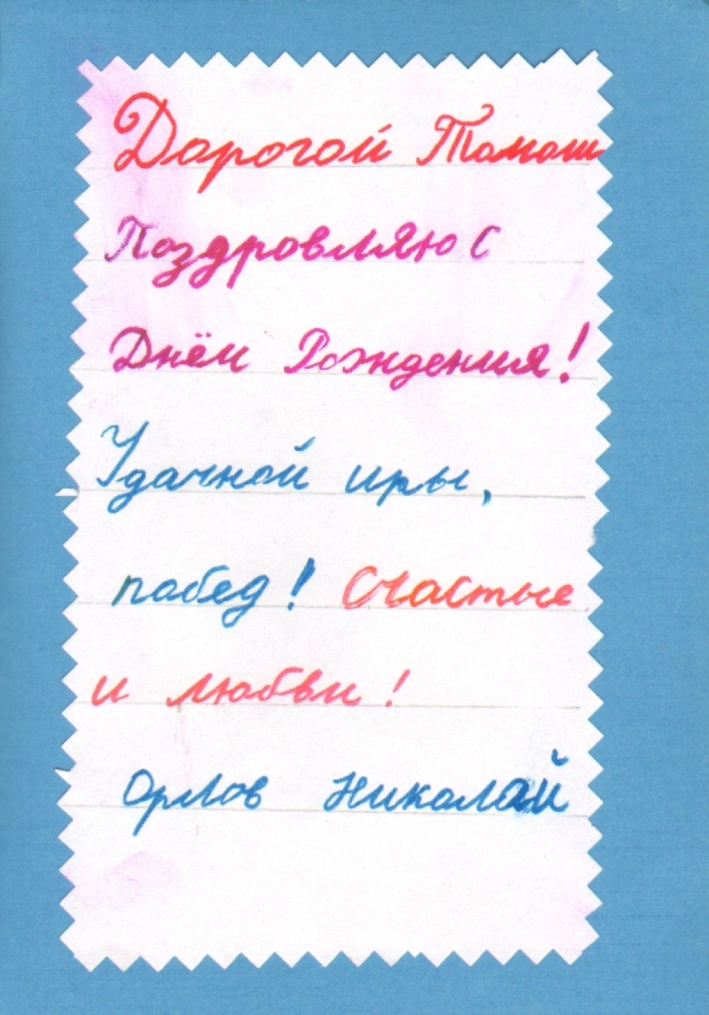 Дорогой Томаш
Поздровляю с
Днём Рождения!
Удачной иры,
побед! Счастье
и любви!
Орлов Николай